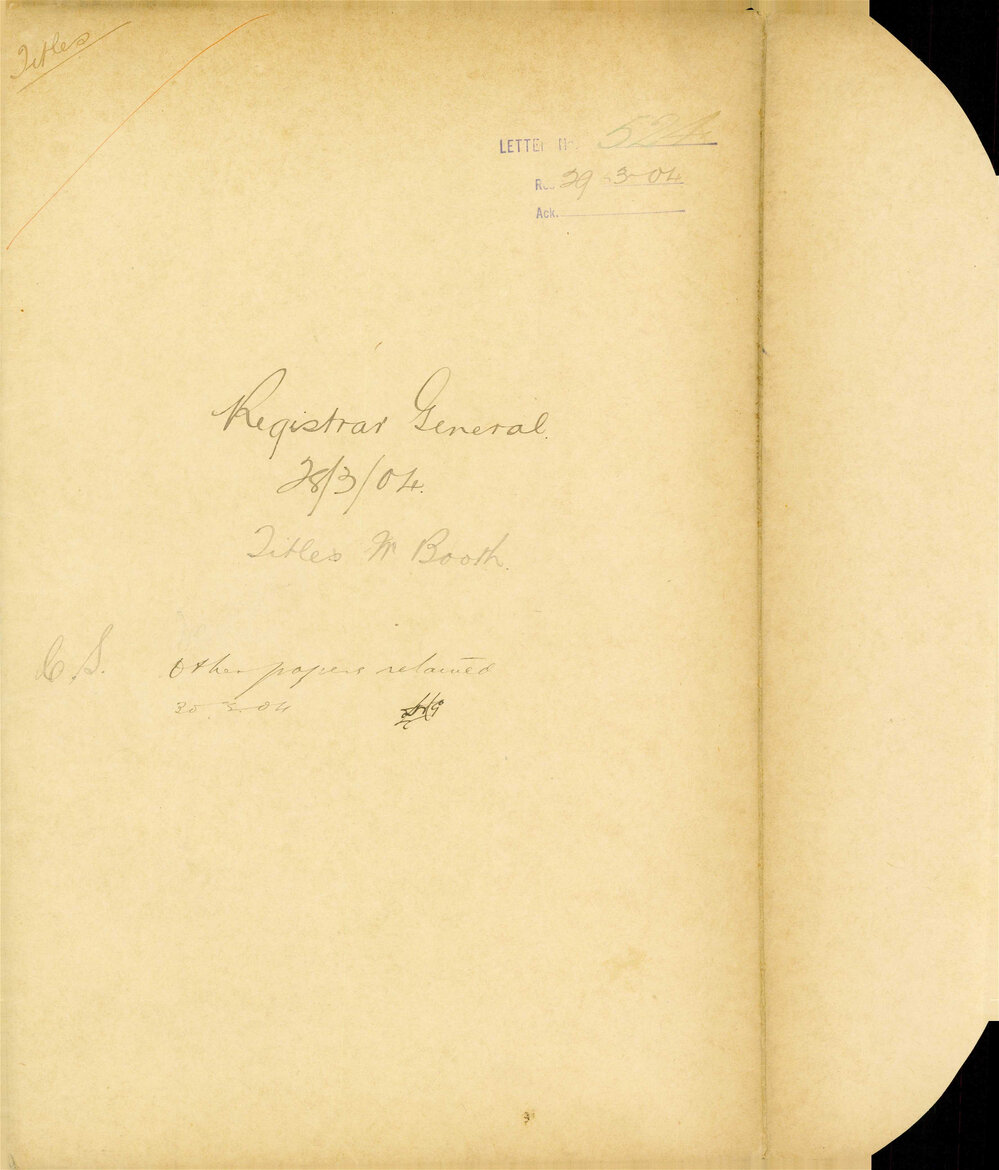 Titles
LETTER No. 524
Rec. 29-3-04
Ack.
Registrar General
28/3/04.
Titles W Booth.
C.S. Other papers retained
30.3.04